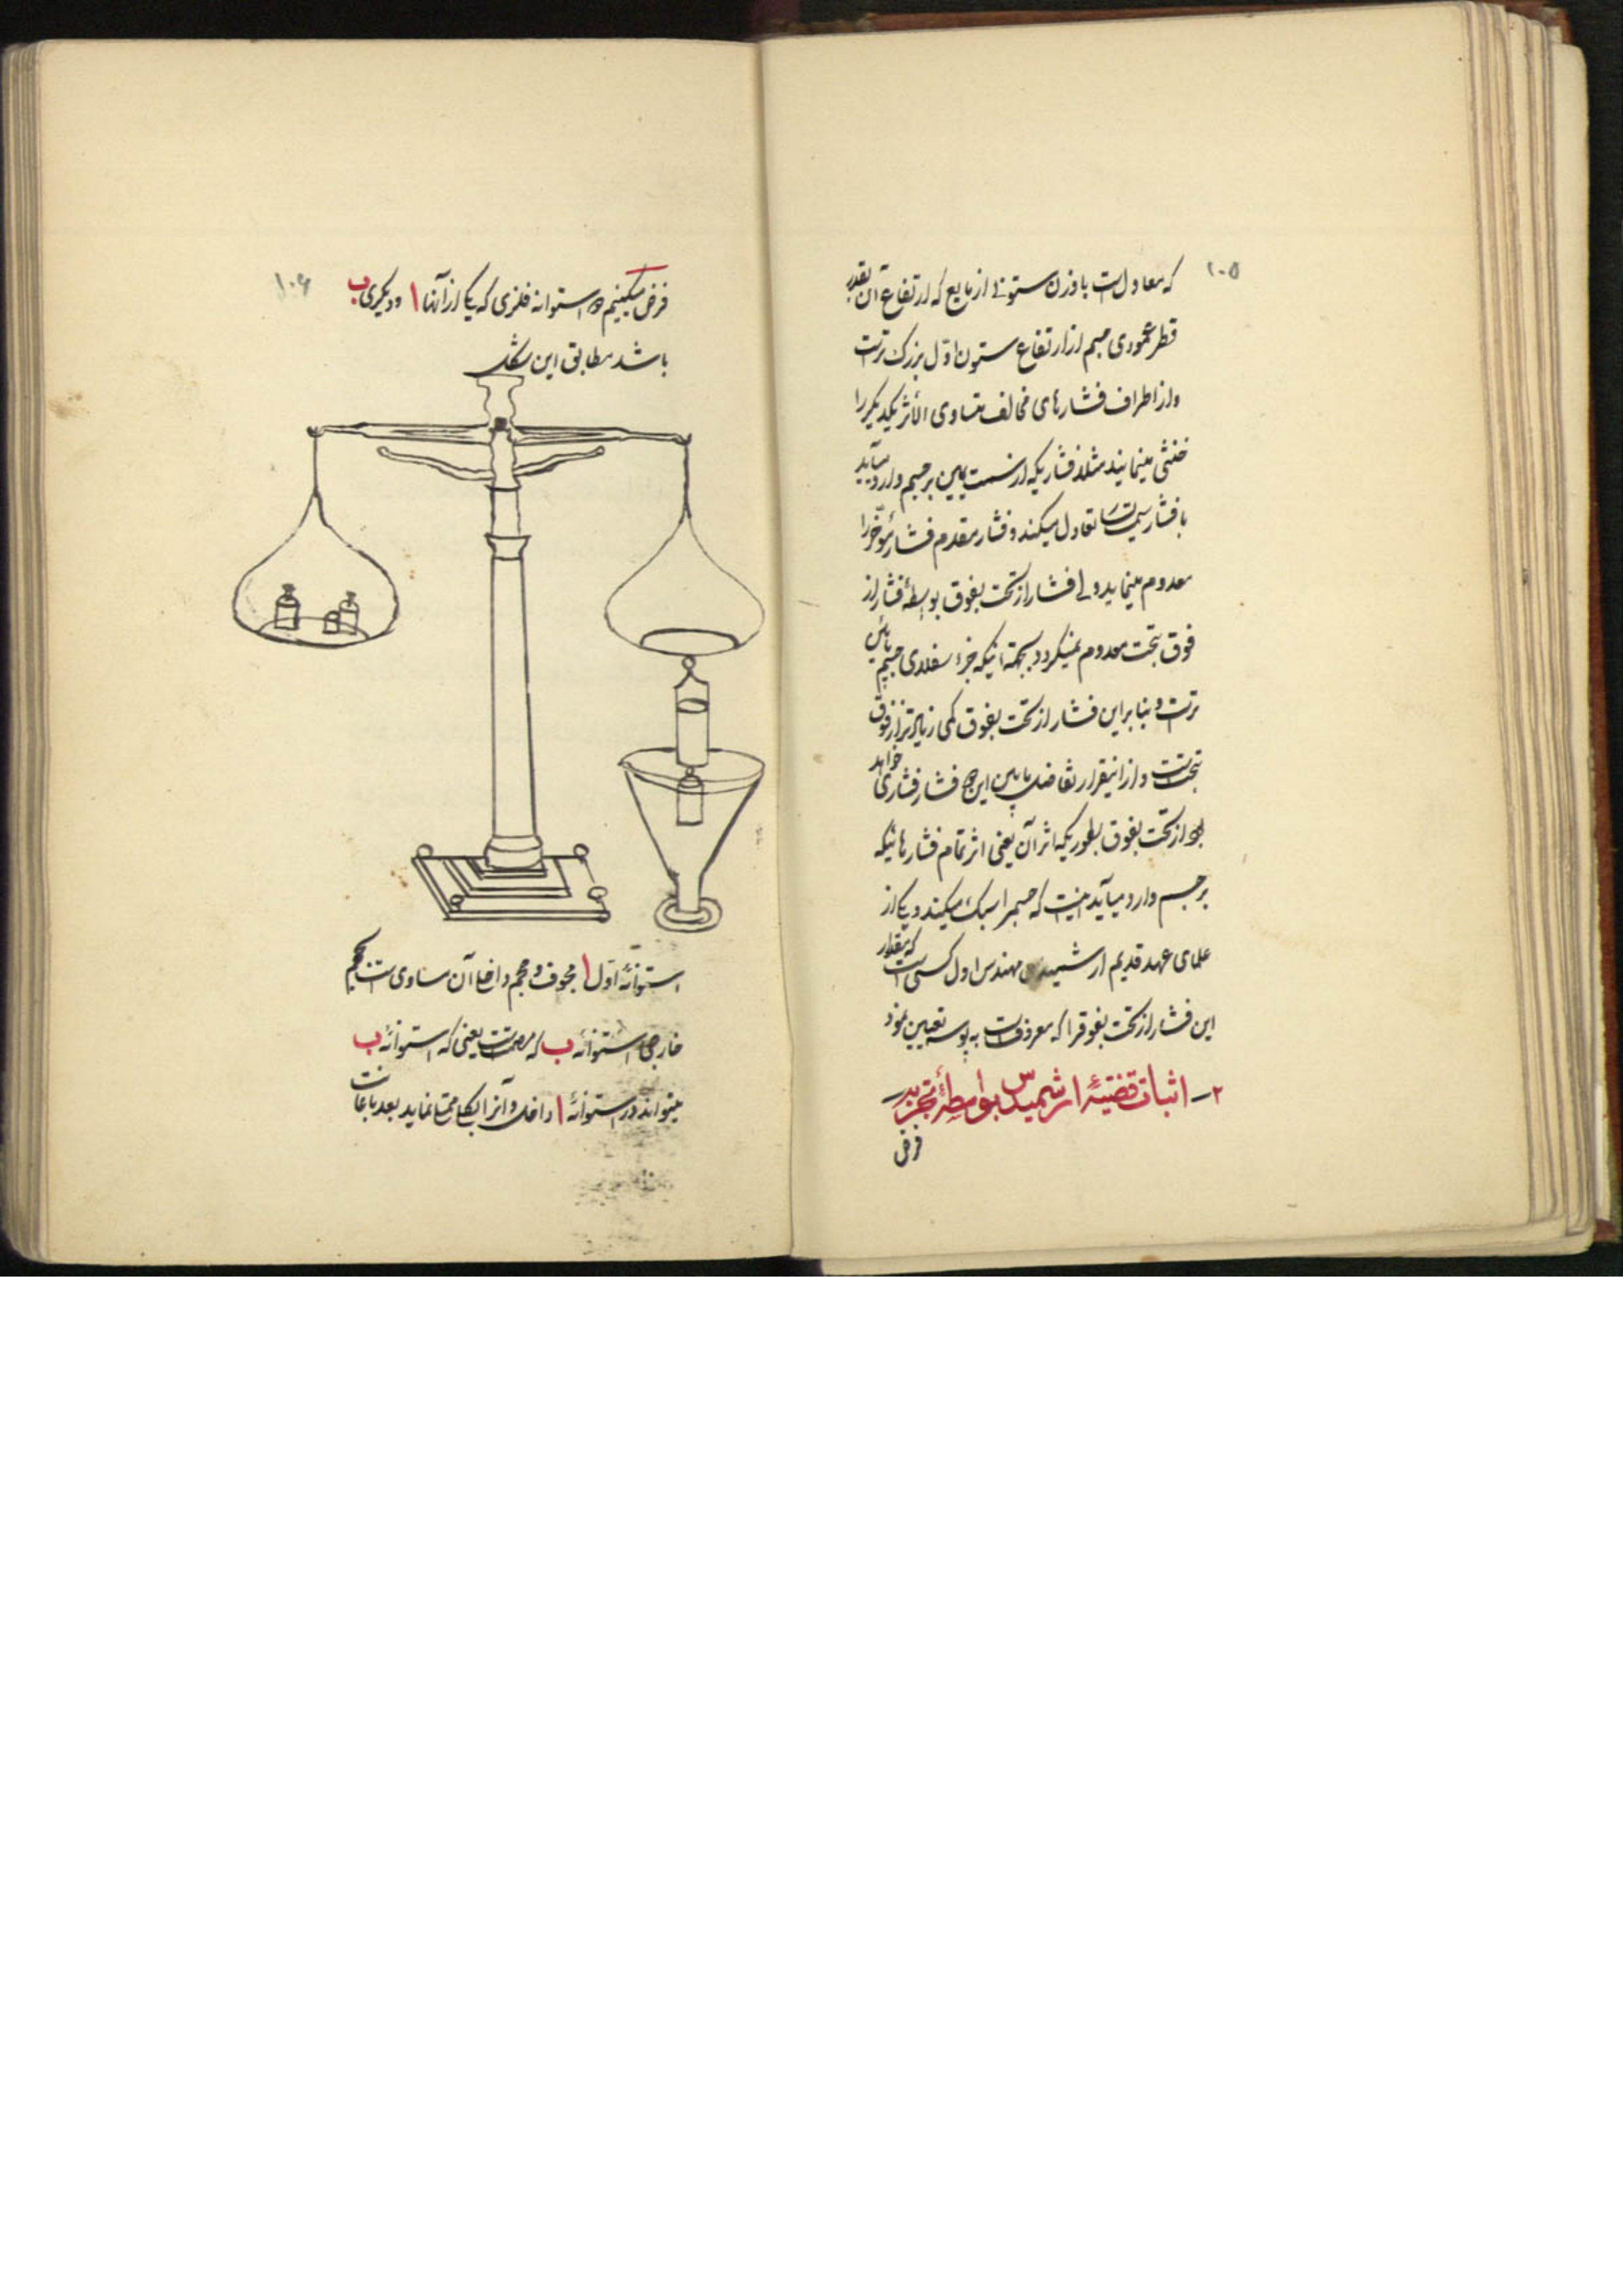 ۱۰۵
که معادل است با وزن ستونی از مایع که ارتفاع آن بقدر
قطر عمودی جسم از ارتفاع ستون اوّل بزرک‌تر است
و از اطراف فشارهای مخالف متساوی الأثر یکدیکر را
خنثی مینمایند مثلا فشاریکه از سمت یمین بر جسم وارد میآید
با فشار سمت تعادل میکند و فشار مقدم فشار مؤخّر را
معدوم مینماید ولی فشار از تحت بفوق بواسطهٔ فشار از
فوق بتحت معدوم نمیکردد بجهة اینکه جزء سفلای جسم پائین
تر است و بنابراین فشار از تحت بفوق کمی زیادتر از فوق
بتحت است و از اینقرار تفاضل مابین این دو فشار فشاری خواهد
بود از تحت بفوق بطوریکه اثر آن یعنی اثر تمام فشارهائیکه
بر جسم وارد میآید اینست که جسم را سبک میکند و یکی از
علمای عهد قدیم ارشمیدس مهندس اول کسی است که مقدار
این فشار از تحت بفوق را که معروفست به پوسه تعیین نمود
۲ـ اثبات قضیّهٔ ارشمیدس بواسطهٔ تجربه
فرض
۱۰۶
فرض میکنیم دو استوانه فلزی که یکی از آنها ا و دیکری ب
باشد مطابق این شکل
استوانهٔ اوّل ا مجوف و حجم داخلی آن مساوی است بحجم
خارجی استوانهٔ ب که مصمت است یعنی که استوانهٔ ب
میتواند در استوانهٔ ا داخل و آنرا بکلی ممتلی نماید بعد باعانت